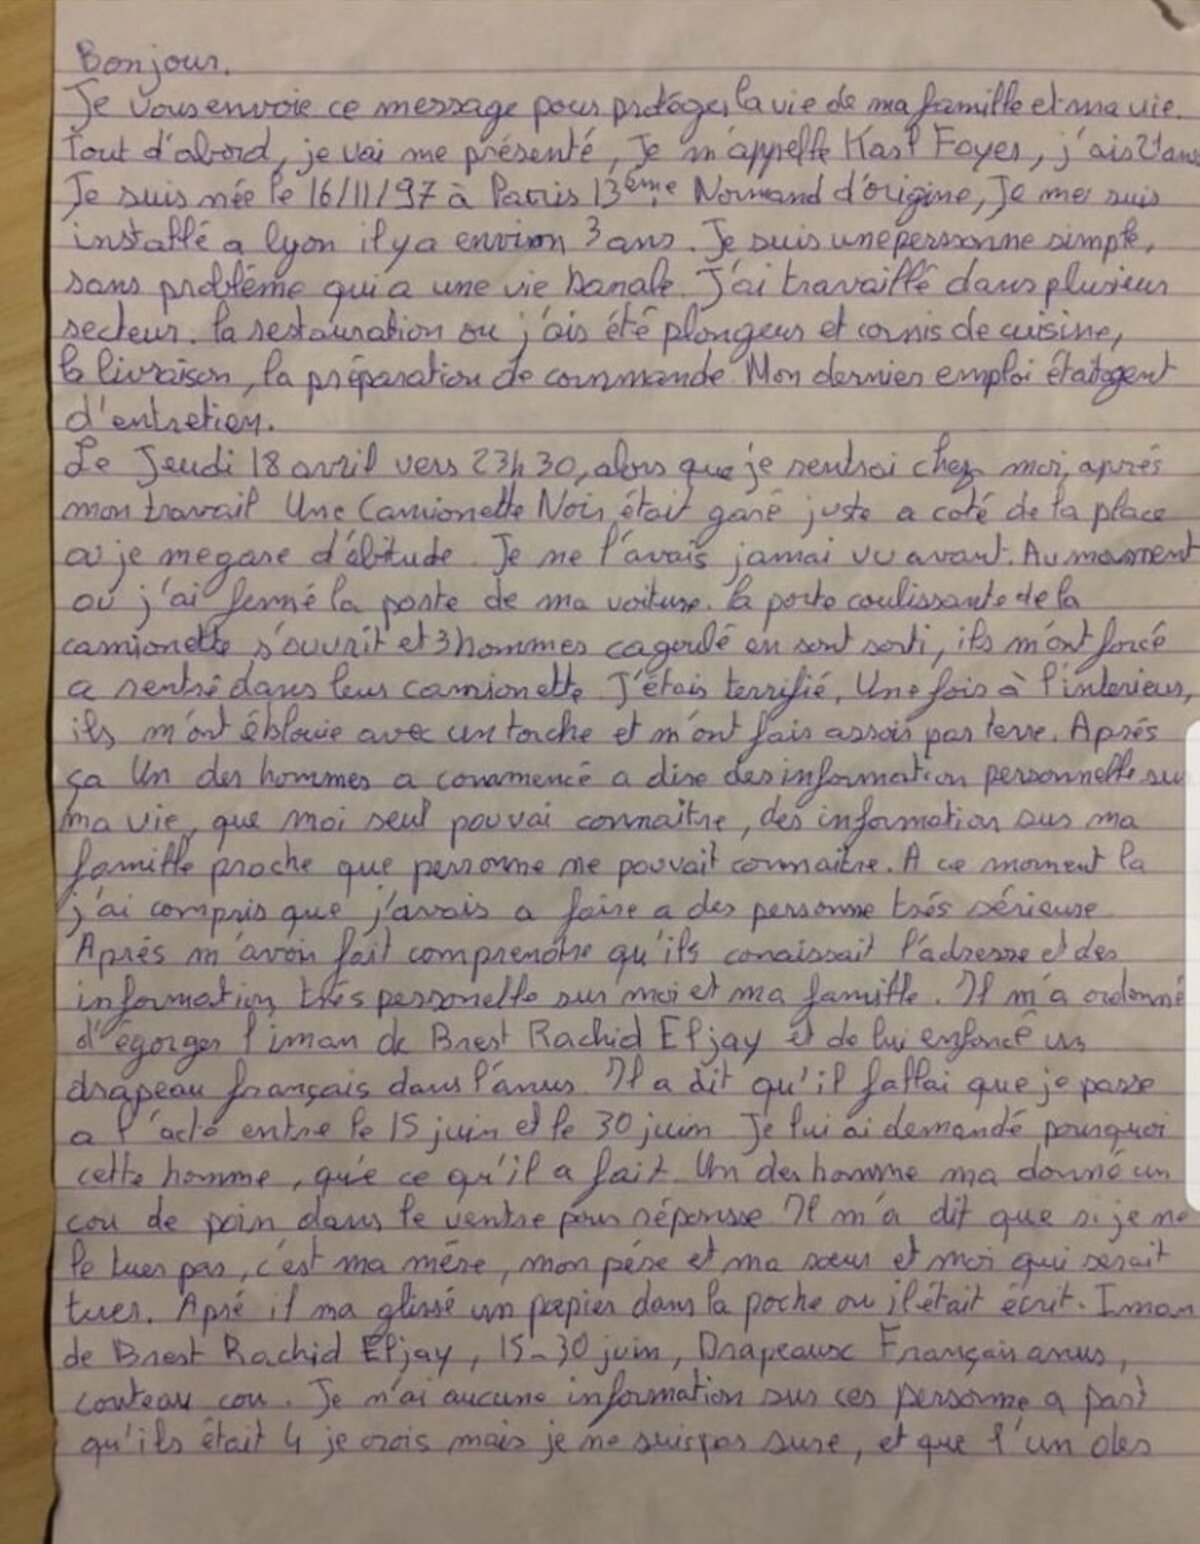 Bonjour.
Je vous envoie ce message pour protéger la vie de ma famille et ma vie.
Tout d'abord, je vai me présenté, Je m'appelle Karl Foyer, j'ais 21 ans
Je suis née le 16/11/97 à Paris 13ème. Normand d'origine, Je me suis
installé a lyon il y a environ 3 ans. Je suis une personne simple,
sans problème qui a une vie banale. J'ai travaillé dans plusieur
secteur. la restauration ou j'ais été plongeur et comis de cuisine,
la livraison, la préparation de commande. Mon dernier emploi était agent
d'entretien.
Le Jeudi 18 avril vers 23h30, alors que je rentrai chez moi, aprés
mon travail Une Camionette Noir, était garé juste a coté de la place
ou je me gare d'abitude. Je ne l'avais jamai vu avant. Au moment
où j'ai fermé la porte de ma voiture. la porte coulissante de la
camionette s'ouvrit et 3 hommes cagoulé en sont sorti, ils m'ont forcé
a rentré dans leur camionette. J'étais terrifié, Une fois à l'interieur,
ils m'ont éblouie avec un torche et m'ont fais assoir par terre. Aprés
ça Un des hommes a commencé a dire des information personnelle sur
ma vie, que moi seul pouvai connaitre, des information sur ma
famille proche que personne ne pouvait connaitre. A ce moment la
j'ai compris que j'avais a faire a des personne trés sérieuse
Aprés m'avoir fait comprendre qu'ils conaissait l'adresse et des
information trés personelle sur moi et ma famille. Il m'a ordonné
d'égorger l'iman de Brest Rachid Eljay et de lui enfoncé un
drapeau français dans l'anus. Il a dit qu'il fallai que je passe
a l'acte entre le 15 juin et le 30 juin. Je lui ai demandé pourquoi
cette homme, qu'e ce qu'il a fait. Un des homme ma donné un
cou de poin dans le ventre pour réponsse. Il m'a dit que si je ne
le tuer pas, c'est ma mére, mon pére et ma sœur et moi qui serait
tuer. Apré il ma glissé un papier dans la poche ou il était écrit. Iman
de Brest Rachid Eljay, 15-30 juin, Drapeaux Français anus,
couteau cou. Je n'ai aucune information sur ces personne a part
qu'ils était 4 je crois mais je ne suis pas sure, et que l'un des